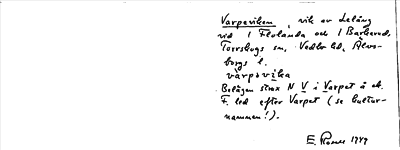 Varpeviken, vik av Lelång
vid 1 Flolånda och 1 Barkerud,
Torrskogs sn, Vedbo hd, Älvs-
borgs l.
varpovika
Belägen strax N V i Varpet å ek.
F. led efter Varpet (se kultur-
namnen!).
E. 1949